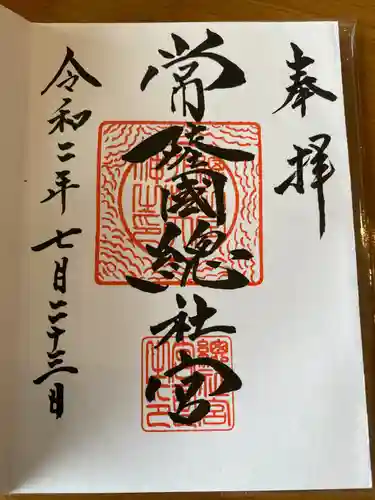 奉拝
常陸國總社宮
令和二年七月二十三日